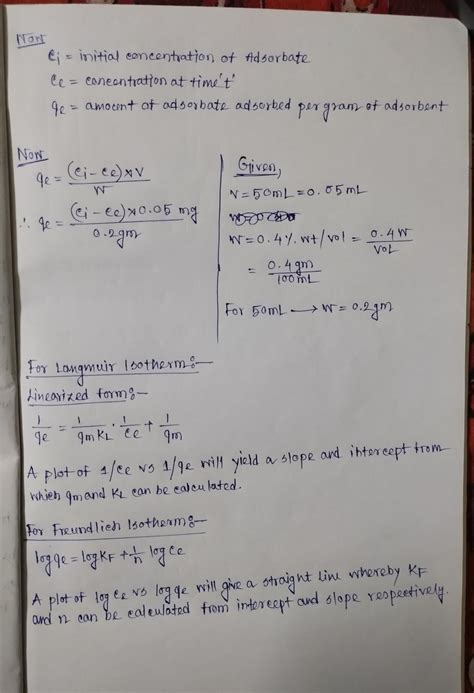 Now
Ci = initial concentration of Adsorbate
Ce = concentration at time 't'
qe = amount of adsorbate adsorbed per gram of adsorbent
Now
qe = (Ci - Ce) × V / W
∴ qe = (Ci - Ce) × 0.05 mg / 0.2gm
Given,
V = 50mL = 0.05mL
W = 0.4% wt/vol = 0.4W / VOL
= 0.4gm / 100mL
For 50mL → W = 0.2gm
For Langmuir Isotherm:-
Linearized form:-
1/qe = 1/qmKL · 1/Ce + 1/qm
A plot of 1/Ce vs 1/qe will yield a slope and intercept from
which qm and KL can be calculated.
For Freundlich Isotherm:-
log qe = log KF + 1/n log Ce
A plot of log Ce vs log qe will give a straight line whereby KF
and n can be calculated from intercept and slope respectively.